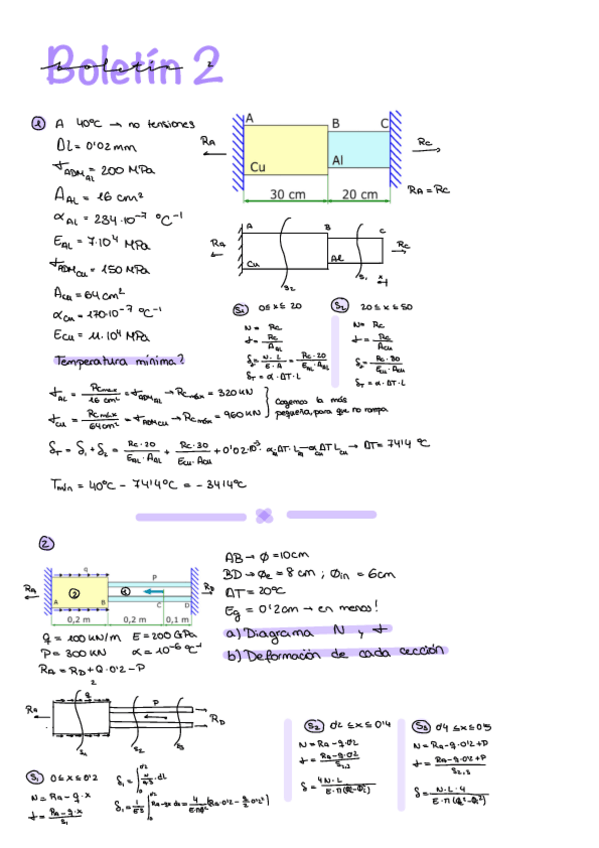 Boletín 2
boletín 2
1 A 40ºC → no tensiones
Δl = 0'02 mm
σADM AL = 200 MPa
AAL = 16 cm²
αAL = 234·10⁻⁷ ºC⁻¹
EAL = 7·10⁴ MPa
σADM CU = 150 MPa
ACU = 64 cm²
αCU = 170·10⁻⁷ ºC⁻¹
ECU = 11·10⁴ MPa
Temperatura mínima?
RA
A
B
C
RC
Cu
Al
30 cm
20 cm
RA = RC
RA
A
B
C
RC
Cu
Al
S2
S1
x
S1 0≤x≤20
N = RC
σ = RC/AAL
δ1 = N·L/E·A = RC·20/EAL·AAL
δT = α·ΔT·L
S2 20≤x≤50
N = RC
σ = RC/ACU
δ2 = RC·30/ECU·ACU
δT = α·ΔT·L
σAL = RCmax/16 cm² = σADM AL → RCmáx = 320 kN
σCU = RCmáx/64 cm² = σADM CU → RCmáx = 960 kN
Cogemos la más
pequeña, para que no rompa
δT = δ1 + δ2 = RC·20/EAL·AAL + RC·30/ECU·ACU + 0'02·10⁻³ = αAL ΔT LAL - αCU ΔT LCU → ΔT = 74'4 ºC
Tmín = 40ºC - 74'4ºC = -34'4ºC
2
RA
q
P
RD
2
1
A
B
C
D
0,2 m
0,2 m
0,1 m
AB → Ø = 10cm
BD → Øe = 8 cm ; Øin = 6cm
ΔT = 20ºC
Eg = 0'2cm → en menos!
a) Diagrama N y σ
b) Deformación de cada sección
q = 100 kN/m E = 200 GPa
P = 300 kN α = 10⁻⁶ ºC⁻¹
RA = RD + Q·0'2 - P
2
q
P
RA
RD
S1
S2
S3
S1 0≤x≤0'2
N = RA - q·x
σ = RA-q·x/S1
δ1 = ∫₀^0'2 N/E·S · dL
δ1 = 1/E·S ∫₀^0'2 RA-qx dx = 4/E·πØ² (RA·0'2 - q/2 0'2²)
S2 0'2≤x≤0'4
N = RA - q·0'2
σ = RA-q·0'2/S2,3
δ = 4N·L/E·π(Øe²-Øi²)
S3 0'4≤x≤0'5
N = RA - q·0'2+P
σ = RA-q·0'2+P/S2,3
δ = N·L·4/E·π(Øe²-Øi²)